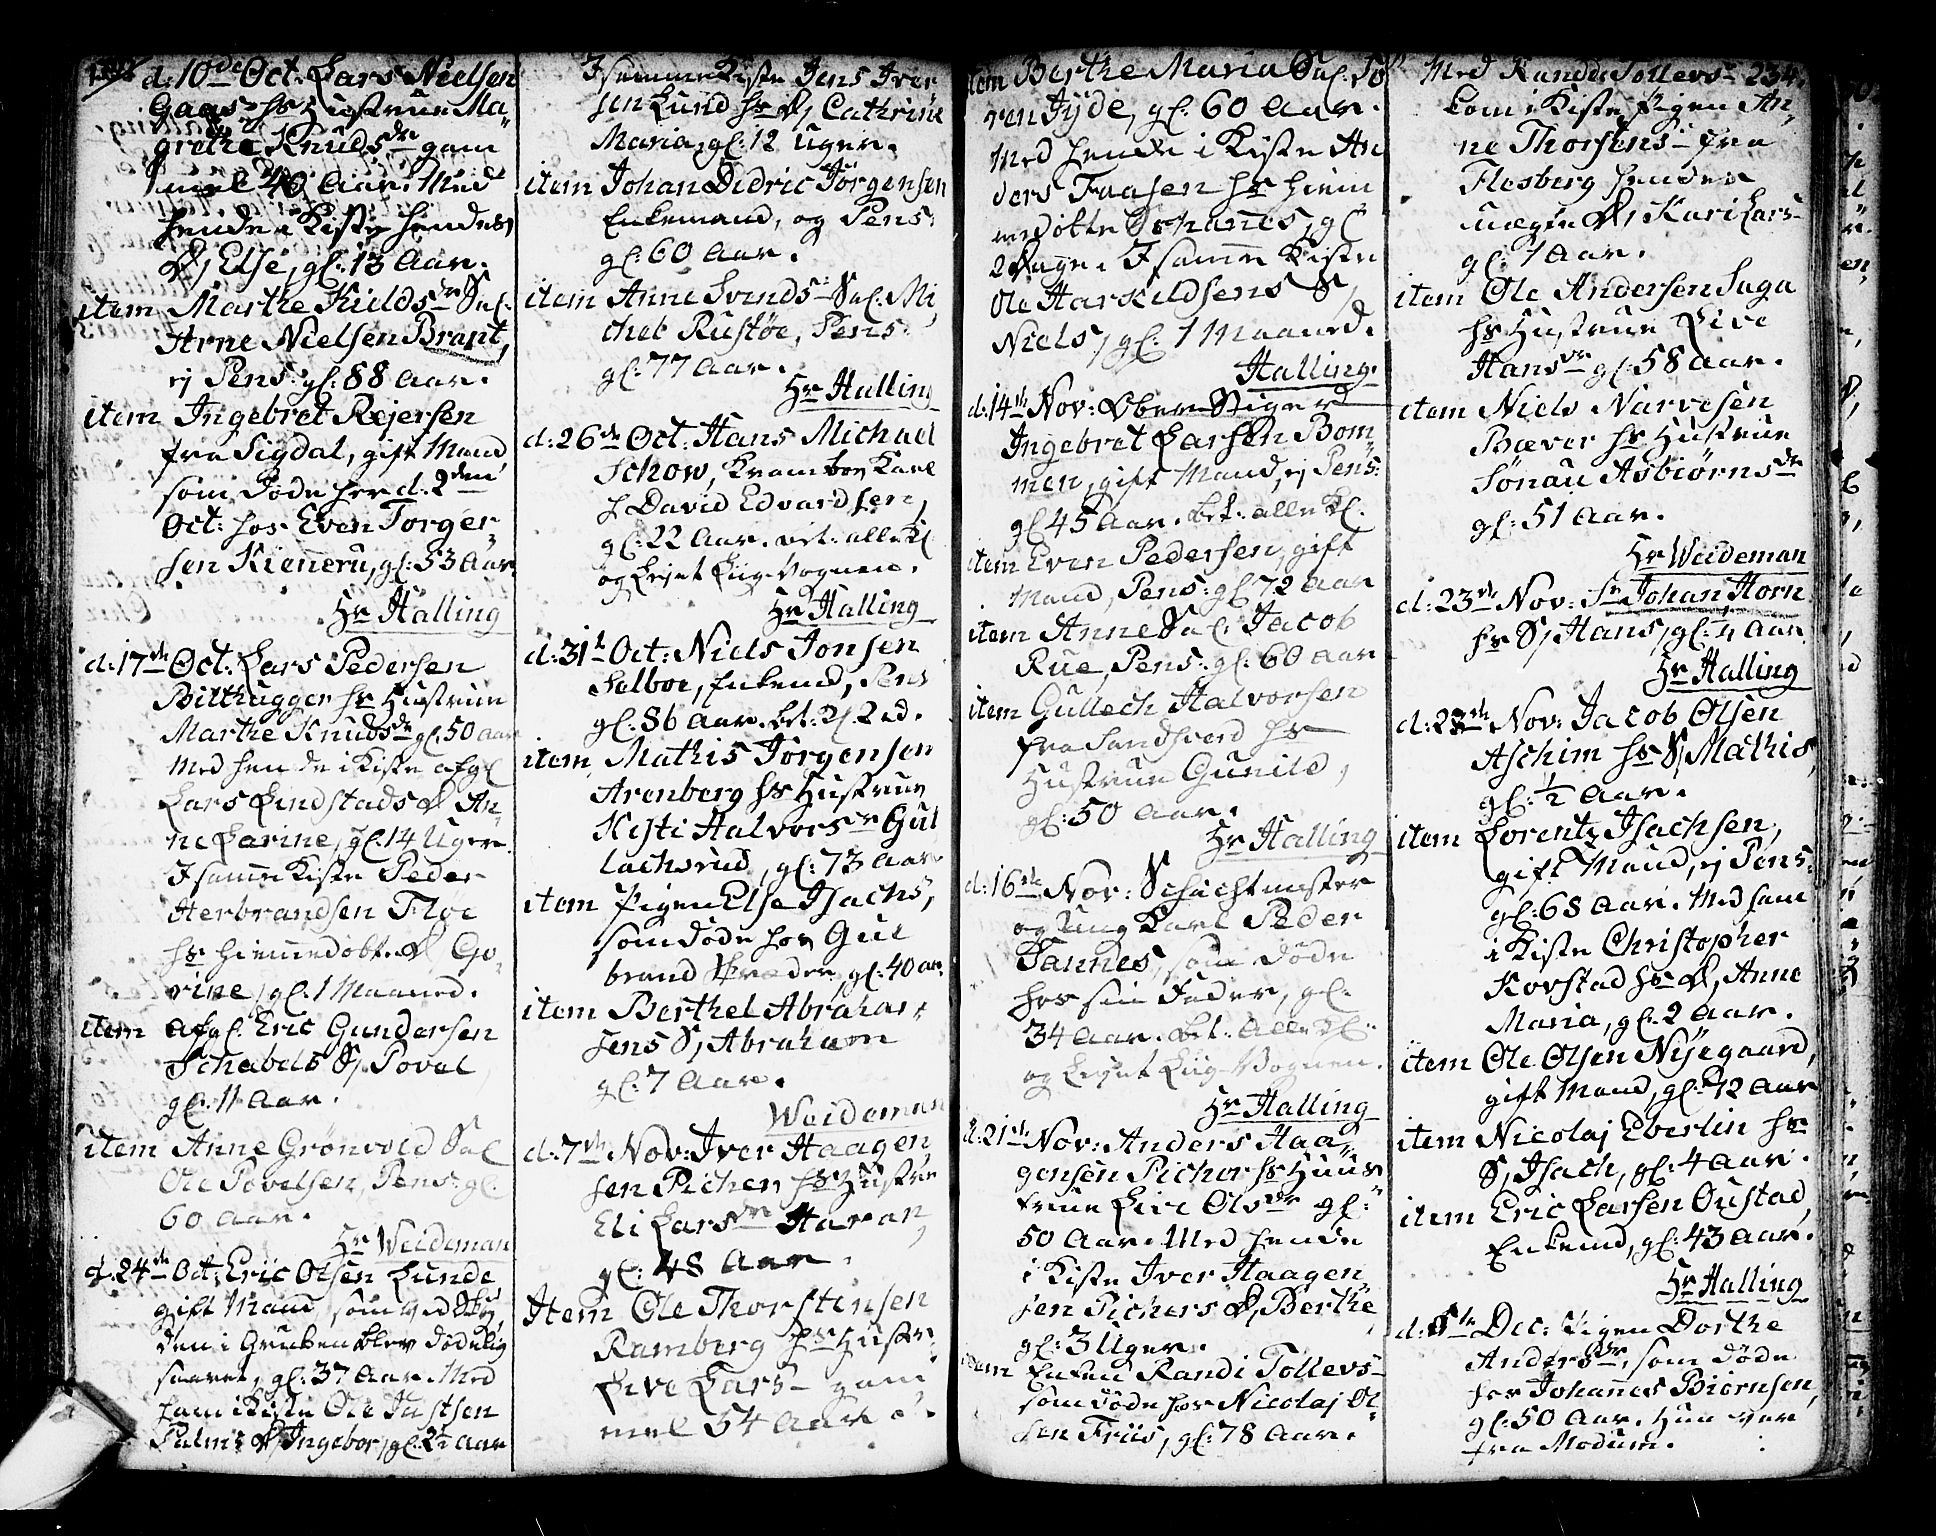 d: 10de Oct. Lars Nielsen
Gaas hs Hustrue Ma„
grethe Knudsdr gam
mel 40 Aar. Med
hende i Kiste hendes
D, Else, gl: 13 Aar.
item Marthe Kieldsdr Sal.
Arne Nielsen Brant,
ej Pens: gl: 88 Aar.
item Ingebret Rejersen
fra Sigdal, gift Mand
som døde her d. 2den
Oct: hos Even Torger„
sen Kienneru, gl: 53 Aar.
Hr Halling
d: 17de Oct: Lars Pedersen
Bilthugger hs Hustrue
Marthe Knudsdr gl. 50 aar
Med hende i Kiste afgl
Lars Lindstads D An„
ne Larine, gl: 14 Uger.
I samme Kiste Peder
Herbrandsen Floe
hs hiemmedøbte D Go„
rine, gl. 1 Maaned.
item afgl. Eric Gundersen
Schabels S, Povel
gl. 11 Aar.
item Anne Grönvold Sal
Ole Povelsen, Pens: gl.
60 aar.
Hr Weideman
d: 24de Oct: Eric Olsen Lunde
gift Mand, som ved Sky„
den i Gruben blev dødelig
saaret, gl: 37 Aar. Med
ham i Kiste Ole Justsen
Palms D, Ingebor, gl. 2½ Aar
I samme Kiste Jens Iver
sen Lund hs D, Cathrine
Maria, gl: 12 Uger.
item Johan Didric Jörgensen
Enkemand, og Pens:
gl: 60 Aar.
item Anne Svends- Sal. Mi„
chel Rustöe, Pens:
gl: 77 Aar.
Hr Halling
d: 26de Oct: Hans Michael
Schow, Kramboe Karl
h David Edvardsen,
gl: 22 Aar. bet: alle Kl
og Lejet Liig-Vognen.
Hr Halling
d: 31t Oct: Niels Jonsen
Solboe, Enkemd, Pens
gl: 86 Aar. bet: 2 2 d.
item Mathis Jörgensen
Arenberg hs Hustrue
Kisti Halvorsdr Gul
lachsrud, gl: 73 Aar
item Pigen Else Isachs,
som døde hos Gul
brand gl: 40 ar.
item Berthel Abraham„
sens S, Abraham
gl: 7 Aar.
Weideman
d: 7de Nov: Iver Haagen„
sen Picher, hs Hustrue
Eli Larsdr Haran,
gl: 48 Aar.
Item Ole Thorstensen
Ramberg hs Hustr„
Live Lars- gam
mel 54 Aar.
item Berthe Maria Sal. Sö„
ren Jyde, gl: 60 Aar.
Med hende i Kiste An
ders Faasen hs hiem
medøbte Johannes, gl
2 Dage. I samme Kiste
Ole Harkildsens S,
Niels, gl. 1 Maaned.
Halling.
d: 14de Nov: Ober Stiger
Ingebret Larsen Bom„
men, gift Mand, ej Pens:
gl 45 Aar. bet: alle Kl.
item Even Pedersen, gift
Mand, Pens: gl 72 Aar
item Anne Sal. Jacob
Rue, Pens: gl: 60 Aar
item Gullech Halvorsen
fra Sandsverd hs
Hustrue Gunild,
gl: 50 Aar.
Hr Halling
d: 16de Nov: Schachtmester
og Ung Karl Peder
Tannes, som døde
hos sin Fader, gl.
34 Aar. bet. Alle Kl.
og Lejet Liig-Vognen.
Hr Halling
d: 21de Nov: Anders Haa„
gensen Picher hs Huus
true Live Olsdr gl:
50 Aar. Med hende
i Kiste Iver Haagen„
sen Pichers D, Berthe
gl: 3 Uger.
item Enken Randi Tollevs-
som døde hos Nicolaj Ol„
sen Friis, gl: 78 Aar.
234.
Med Randi Tollevs-
kom i Kiste Pigen An„
ne Thorsens- fra
Flesberg hendes
uægte D, Kari Lars-
gl. 7 Aar.
item Ole Andersen Saga
hs Hustrue Live
Hansdr gl: 58 Aar.
item Niels Narvesen
Bæver hs Hustrue
Sönau Asbiörnsdr
gl: 51 Aar.
Hr Weideman
d: 23de Nov: Sr Johan Horn
hs S, Hans, gl: Aar.
Hr Halling
d: 23de Nov: Jacob Olsen
Aschim hs S, Mathis,
gl: ½ Aar.
item Lorentz Isachsen,
gift Mand, ej Pens:
gl: 68 Aar. Med ham
i Kiste Christopher
Korstad hs D, Anne
Maria, gl. 2 Aar.
item Ole Olsen Nyegaard,
gift Mand, gl: 72 Aar
item Nicolaj Eberlin hs
S, Isach, gl: 4 Aar.
item Eric Larsen Oustad,
Enkemd, gl: 43 Aar.
Hr Halling
d: 5te Dec: Pigen Dorthe
Andersdr, som døde
hos Johannes Biörnsen,
gl: 50 Aar. Hun var
fra Modum.